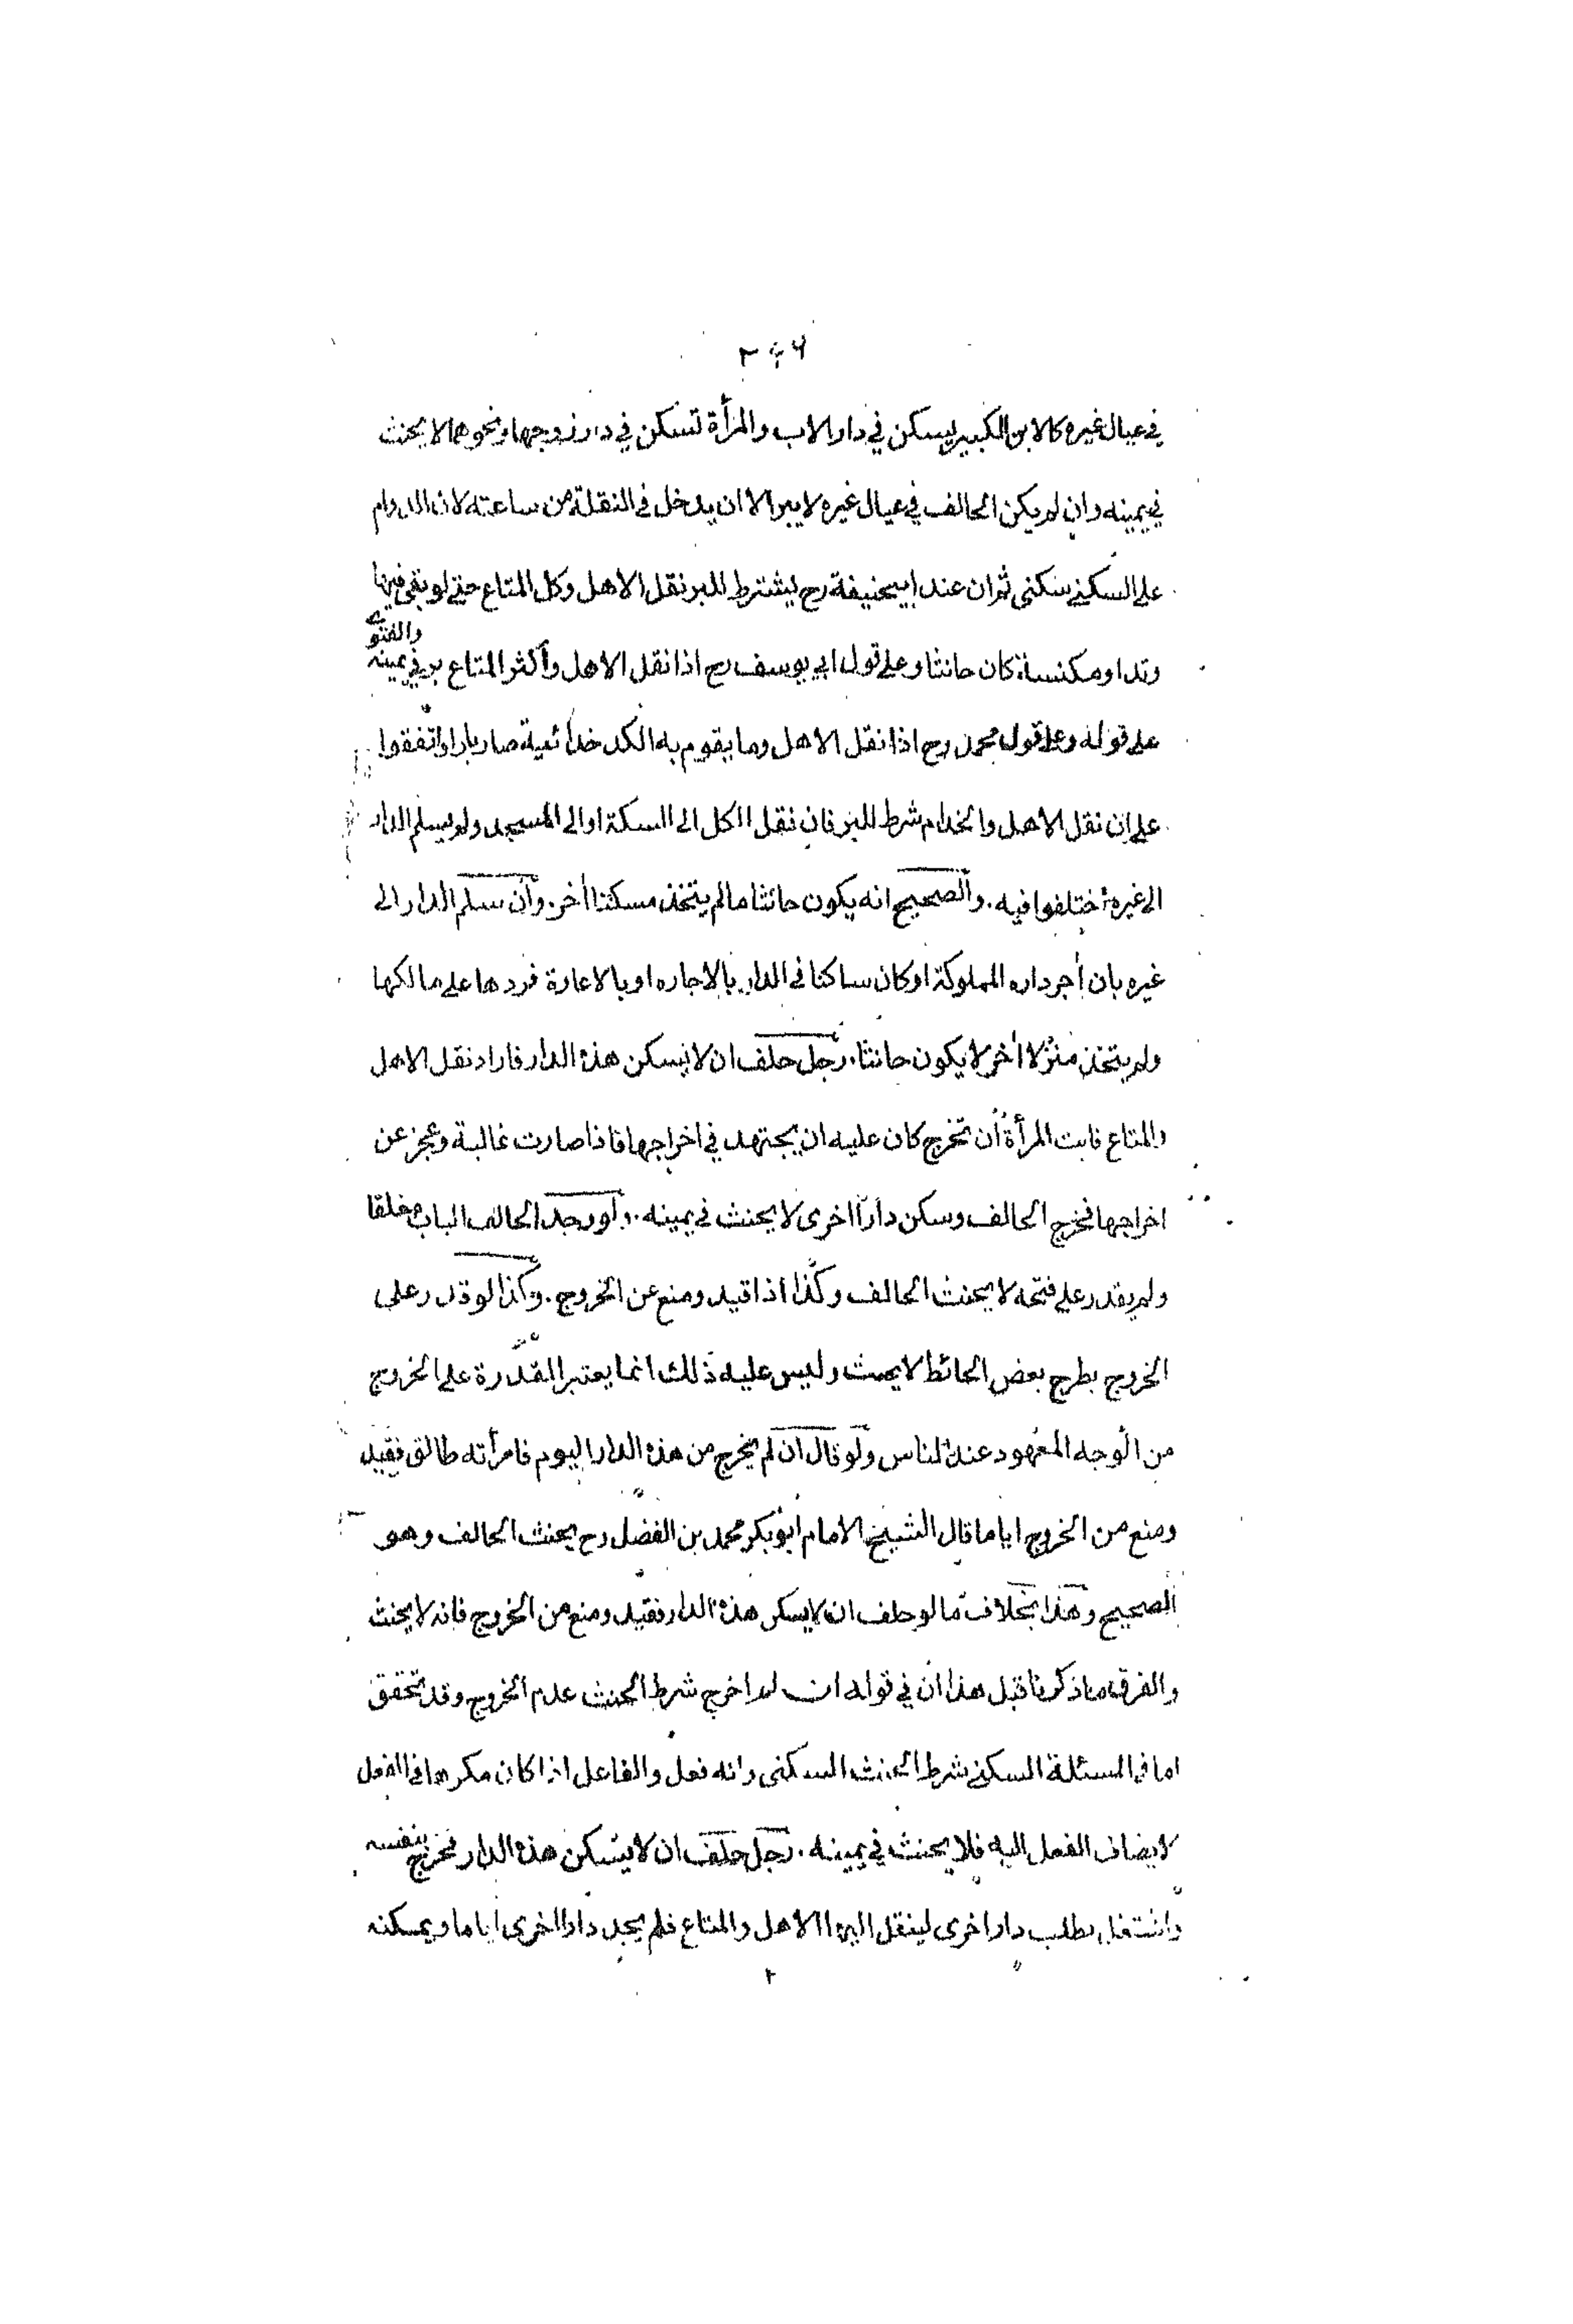 في عيال غيره كالابن الكبير يسكن في دار الاب والمرأة تسكن في دار زوجها ونحوهما لا يحنث
في يمينه وان لم يكن الحالف في عيال غيره لا يبر الا ان يدخل في النقلة من ساعته لان الدوام
على السكنى سكنى ثم ان عند ابيحنيفة رح يشترط للبر نقل الاهل وكل المتاع حتى لو بقي فيها
وتد او مكنسة كان حانثا وعلى قول ابي يوسف رح اذا نقل الاهل وأكثر المتاع بر في يمينه والفتوى
على قوله وعلى قول محمد رح اذا نقل الاهل وما يقوم به الكدخدائية صار بارا واتفقوا
على ان نقل الاهل والخدام شرط للبر فان نقل الكل الى السكة او الى المسجد ولم يسلم الدار
الى غيره اختلفوا فيه . والصحيح انه يكون حانثا ما لم يتخذ مسكنا أخر . وأن سلم الدار الى
غيره بان أجر داره المملوكة او كان ساكنا في الدار بالاجاره او بالاعارة فردها على مالكها
ولم يتخذ منزلا أخر لا يكون حانثا . رجل حلف ان لا يسكن هذه الدار فاراد نقل الاهل
والمتاع فابت المرأة أن تخرج كان عليه ان يجتهد في اخراجها فاذا صارت غالبة وعجز عن
اخراجها فخرج الحالف وسكن دارًا اخرى لا يحنث في يمينه . ولو وجد الحالف الباب مغلقا
ولم يقدر على فتحه لا يحنث الحالف وكذا اذا قيد ومنع عن الخروج . وكذا لو قدر على
الخروج بطرح بعض الحائط لا يحنث وليس عليه ذلك انما يعتبر القدرة على الخروج
من الوجه المعهود عند الناس ولو قال ان لم يخرج من هذه الدار اليوم فامرأته طالق فقيد
ومنع من الخروج اياما قال الشيخ الامام ابو بكر محمد بن الفضل رح يحنث الحالف وهو
الصحيح وهذا بخلاف ما لو حلف ان لا يسكن هذه الدار فقيد ومنع من الخروج فانه لا يحنث
والفرق ما ذكرنا قبل هذا ان في قوله ان لم اخرج شرط الحنث عدم الخروج وقد تحقق
اما في المسئلة السكنى شرط الحنث السكنى وانه فعل والفاعل اذا كان مكرها في الفعل
لا يضاف الفعل اليه فلا يحنث في يمينه . رجل حلف ان لا يسكن هذه الدار فخرج بنفسه
واشتغل بطلب دار اخرى لينقل اليها الاهل والمتاع فلم يجد دارا اخرى اياما ويمكنه